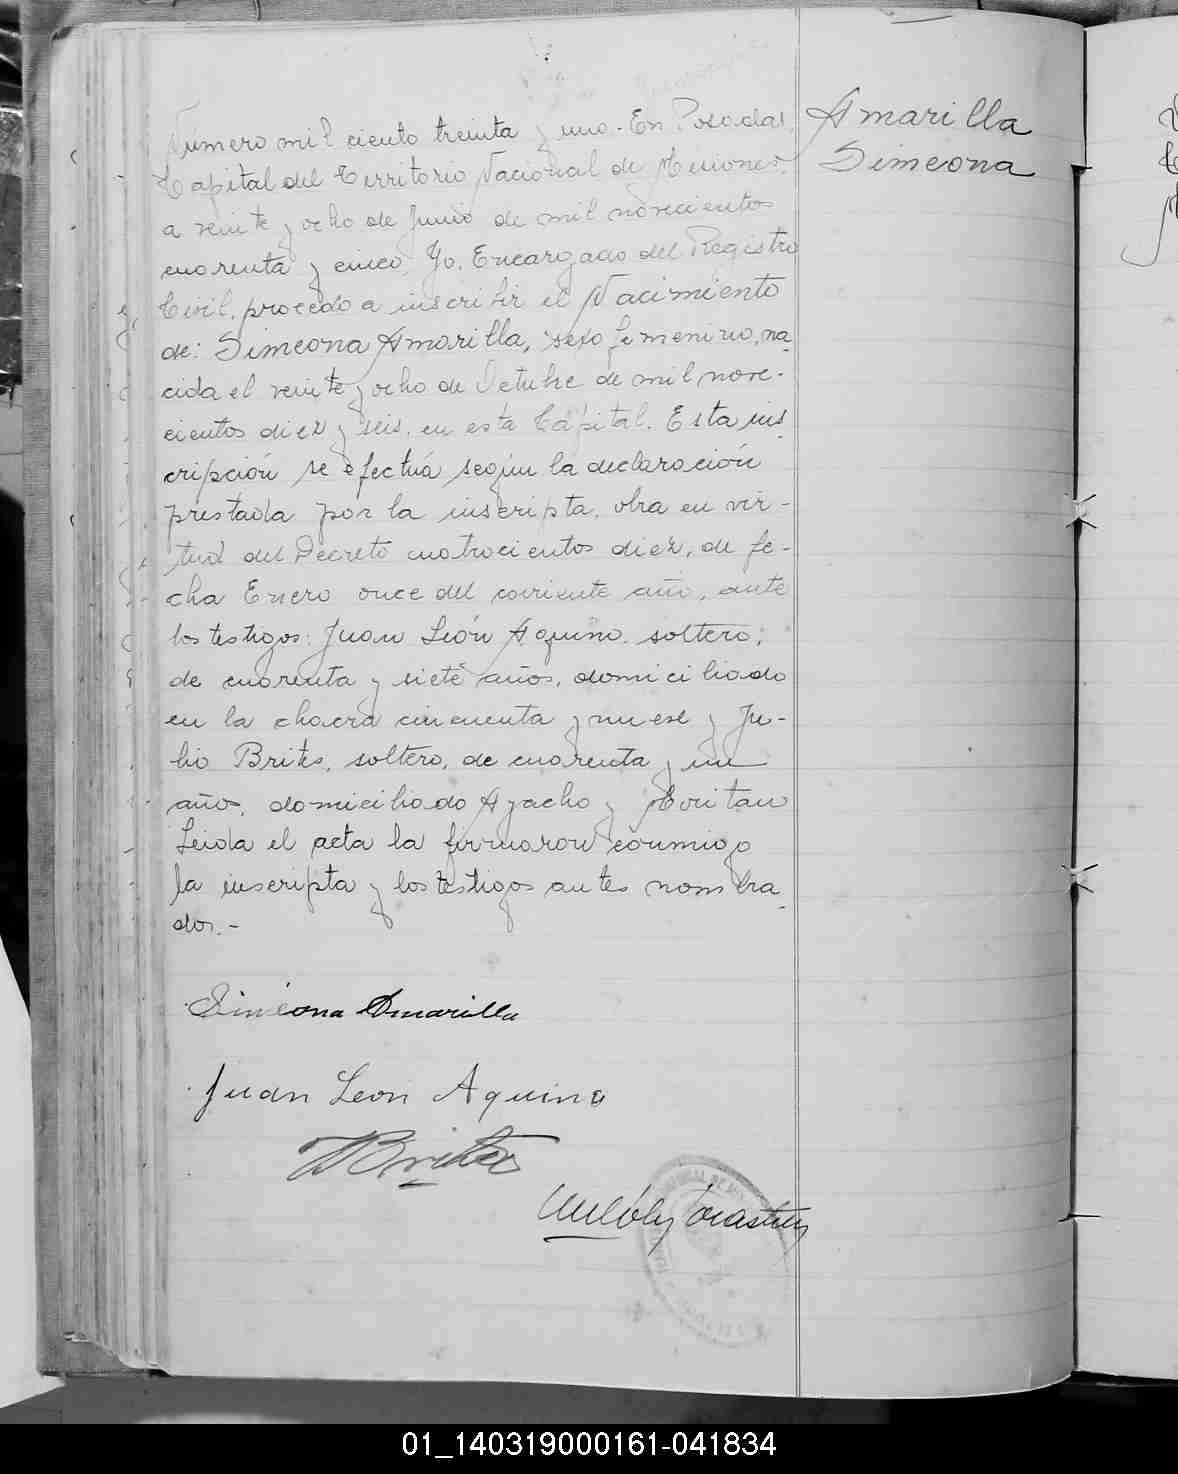 Número mil ciento treinta y uno. En Posadas,
Capital del Territorio Nacional de Misiones,
a veinte y ocho de Junio de mil novecientos
cuarenta y cinco, Yo, Encargado del Registro
Civil, procedo a inscribir el Nacimiento
de: Simeona Amarilla, sexo femenino, na-
cida el veinte y ocho de Octubre de mil nove-
cientos diez y seis, en esta Capital. Esta ins-
cripción se efectúa según la declaración
prestada por la inscripta, obra en vir-
tud del Decreto cuatrocientos diez, de fe-
cha Enero once del corriente año, ante
los testigos: Juan León Aquino, soltero,
de cuarenta y siete años, domiciliado
en la chacra cincuenta y nueve y Ju-
lio Brites, soltero, de cuarenta y un
años, domiciliado Ayacho y
Leida el acta la firmaron conmigo
la inscripta y los testigos antes nombra-
dos.-
Amarilla
Simeona
Simeona Amarilla
Juan Leon Aquino
JBrites
01_140319000161-041834